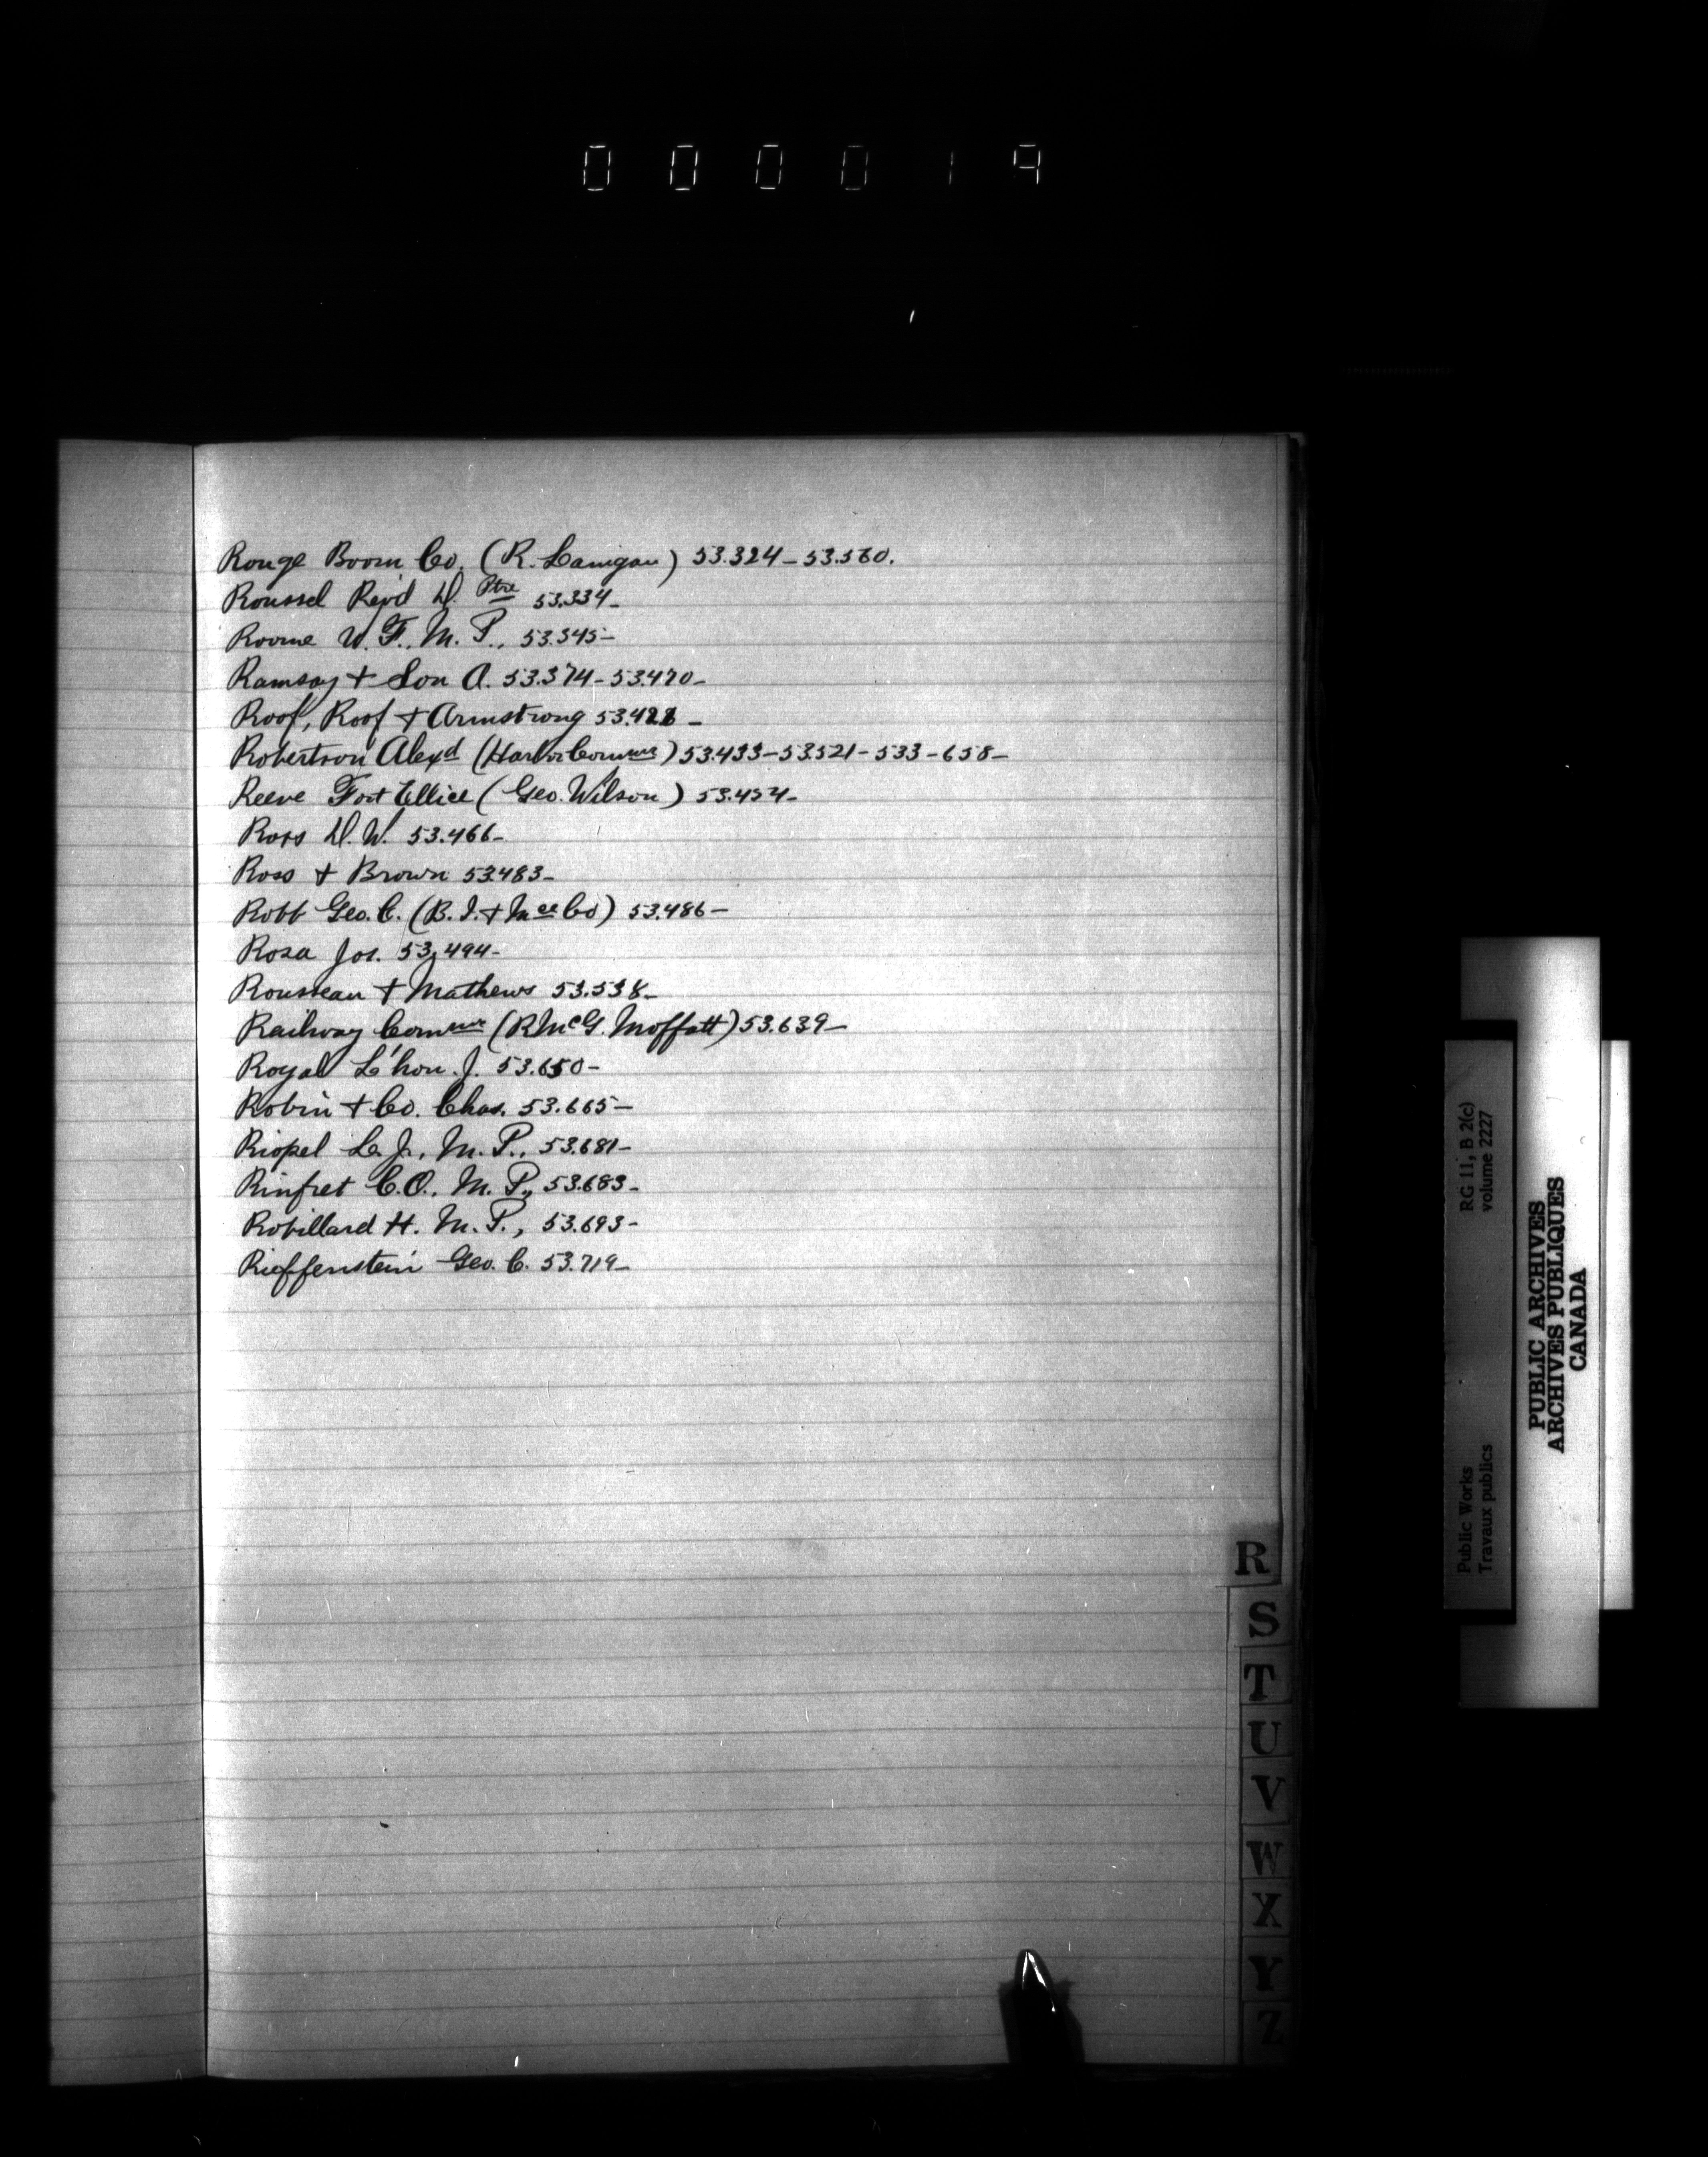 000019
Rouge Boom Co. (R. Lanigan) 53.324-53.560.
Roussel Rev'd D. Ptre 53.334-
Roome W. F., M. P., 53.345-
Ramsay + Son A. 53.374-53.470-
Roof, Roof + Armstrong 53.428-
Robertson Alexd (Harbor Comms) 53.433-53.521-533-658-
Reeve Fort Ellice (Geo. Wilson) 53.454-
Ross D. W. 53.466-
Ross + Brown 53.483-
Robb Geo. C. (B. I. + Mce Co) 53.486-
Rosa Jos. 53.494-
Rousseau + Mathews 53.538-
Railway Comms (R McG. Moffatt) 53.639-
Royal L'hon. J. 53.650-
Robin + Co. Chas. 53.665-
Riopel L. J., M. P., 53.681-
Rinfret C. O., M. P., 53.683-
Robillard H. M. P., 53.693-
Rieffenstein Geo. C. 53.719-
R
S
T
U
V
W
X
Y
Z
Public Works
Travaux publics
RG 11, B 2(c)
volume 2227
PUBLIC ARCHIVES
ARCHIVES PUBLIQUES
CANADA